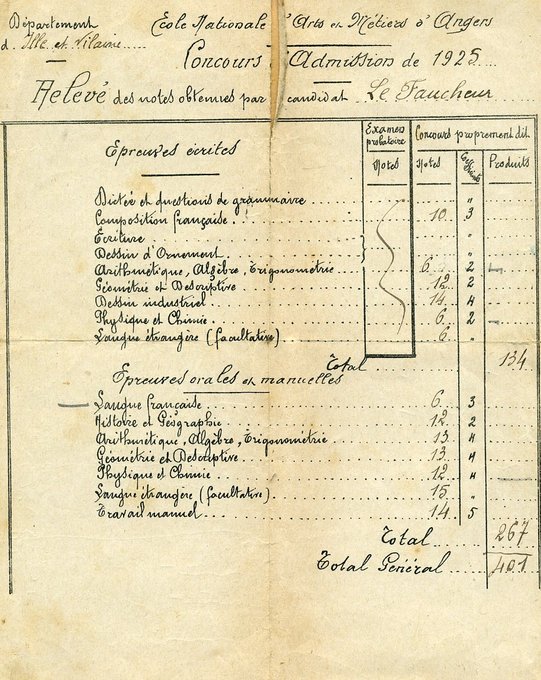 Département Ecole Nationale d'Arts et Métiers d'Angers
d. Ille et Vilaine
Concours d'Admission de 1925
Relevé des notes obtenues par candidat Le Faucheur
Epreuves écrites
Examen probatoire
Notes
Concours proprement dit
Notes Coefficients Produits
Dictée et questions de grammaire "
Composition française 10 3
Ecriture "
Dessin d'Ornement "
Arithmétique, Algèbre, Trigonométrie 6 2
Géométrie et Descriptive 12 2
Dessin industriel 14 4
Physique et Chimie 6 2
Langue étrangère (facultative) 6 "
Total 134
Epreuves orales et manuelles
Langue française 6 3
Histoire et Géographie 12 2
Arithmétique, Algèbre, Trigonométrie 13 4
Géométrie et Descriptive 13 4
Physique et Chimie 12 4
Langue étrangère (facultative) 15 "
Travail manuel 14 5
Total 267
Total Général 401